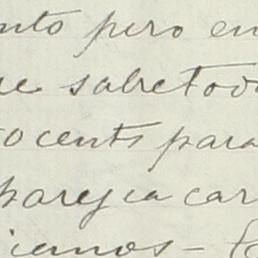 nto pero en
ue sobretodo
o cents para
pareja car
iamos -